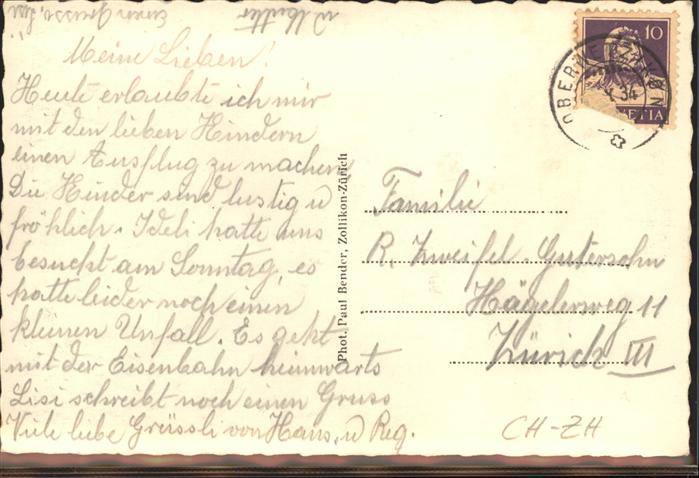 Meine Lieben!
Heute erlaubte ich mir
mit den lieben Kindern
einen Ausflug zu machen,
Die Kinder sind lustig u
fröhlich. Ideli hatte uns
besucht am Sonntag, es
hatte leider noch einen
kleinen Unfall. Es geht
mit der Eisenbahn heimwärts
Lisi schreibt noch einen Gruss
Viele liebe Grüssli von Hans, u Reg.
u Mutter
Lisi
Phot. Paul Bender, Zollikon-Zürich
10
HELVETIA
34
Familie
R. Zweifel-Gutersohn
Hägelerweg 11
Zürich III
CH-ZH